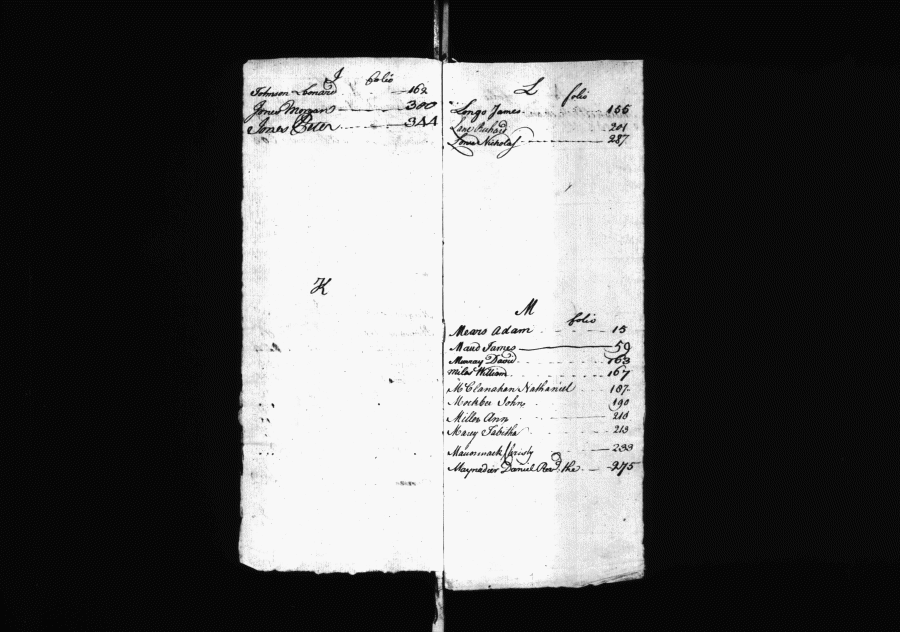 J folio
Johnson Leonard 162
Jones Morgan 300
Jones Peter 344
K
L folio
Longo James 156
Lane Richard 201
Lowe Nicholas 287
M
folio
Mears Adam 15
Maud James 59
Murray David 163
Miles William 167
McClanahan Nathaniel 187
Mockbee John 190
Miller Ann 213
Marcy Tabitha 213
Christy 233
Maynadier Daniel Revd. the 275